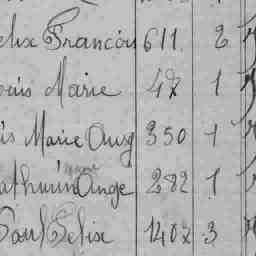 elix François 611 2
ouis Marie 47 1
is Marie Aug 350 1
athurin Ange 282 1
Paul Felix 1402 3